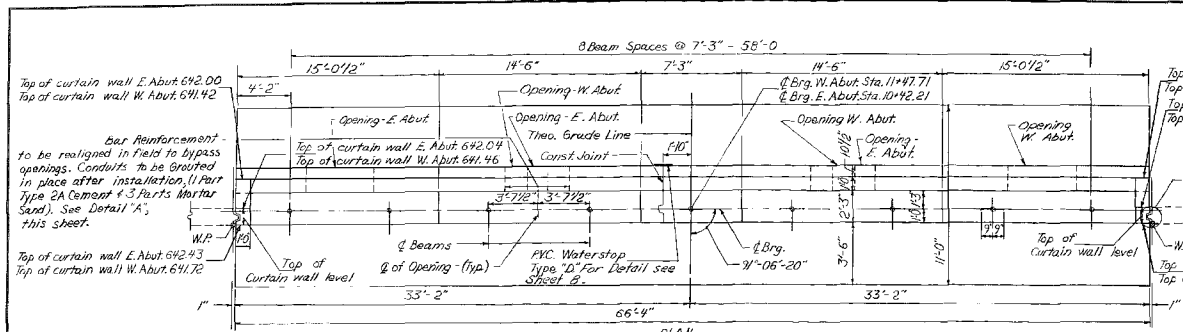 8 Beam Spaces @ 7'-3" - 58'-0
15'-0 1/2"
14'-6"
7'-3"
14'-6"
15'-0 1/2"
Top of curtain wall E. Abut. 642.00
Top of curtain wall W. Abut. 641.42
4'-2"
Opening-W. Abut.
₵ Brg. W. Abut. Sta. 11+47.71
₵ Brg. E. Abut. Sta. 10+42.21
Top
Top
Top
Top
Opening-E. Abut.
Opening - E. Abut.
Theo. Grade Line
Opening W. Abut.
Opening - E. Abut.
Opening W. Abut.
10 1/2"
Bar Reinforcement -
to be realigned in field to bypass
openings. Conduits to be Grouted
in place after installation, (1 Part
Type 2A Cement & 3 Parts Mortar
Sand). See Detail "A",
this sheet.
Top of curtain wall E. Abut. 642.04
Top of curtain wall W. Abut. 641.46
Const. Joint
1'-10"
3'-7 1/2"
3'-7 1/2"
2'-3"
3'-6"
11'-0"
9"
9"
W.P.
1'-0"
Top of curtain wall E. Abut. 642.43
Top of curtain wall W. Abut. 641.72
Top of
Curtain wall level
₵ Beams
₵ of Opening - (Typ.)
P.V.C. Waterstop
Type "D". For Detail see
Sheet 8.
₵ Brg.
91°-06'-20"
Top of
Curtain wall level
W.
Top
Top
1"
33'-2"
33'-2"
1"
66'-4"
PLAN